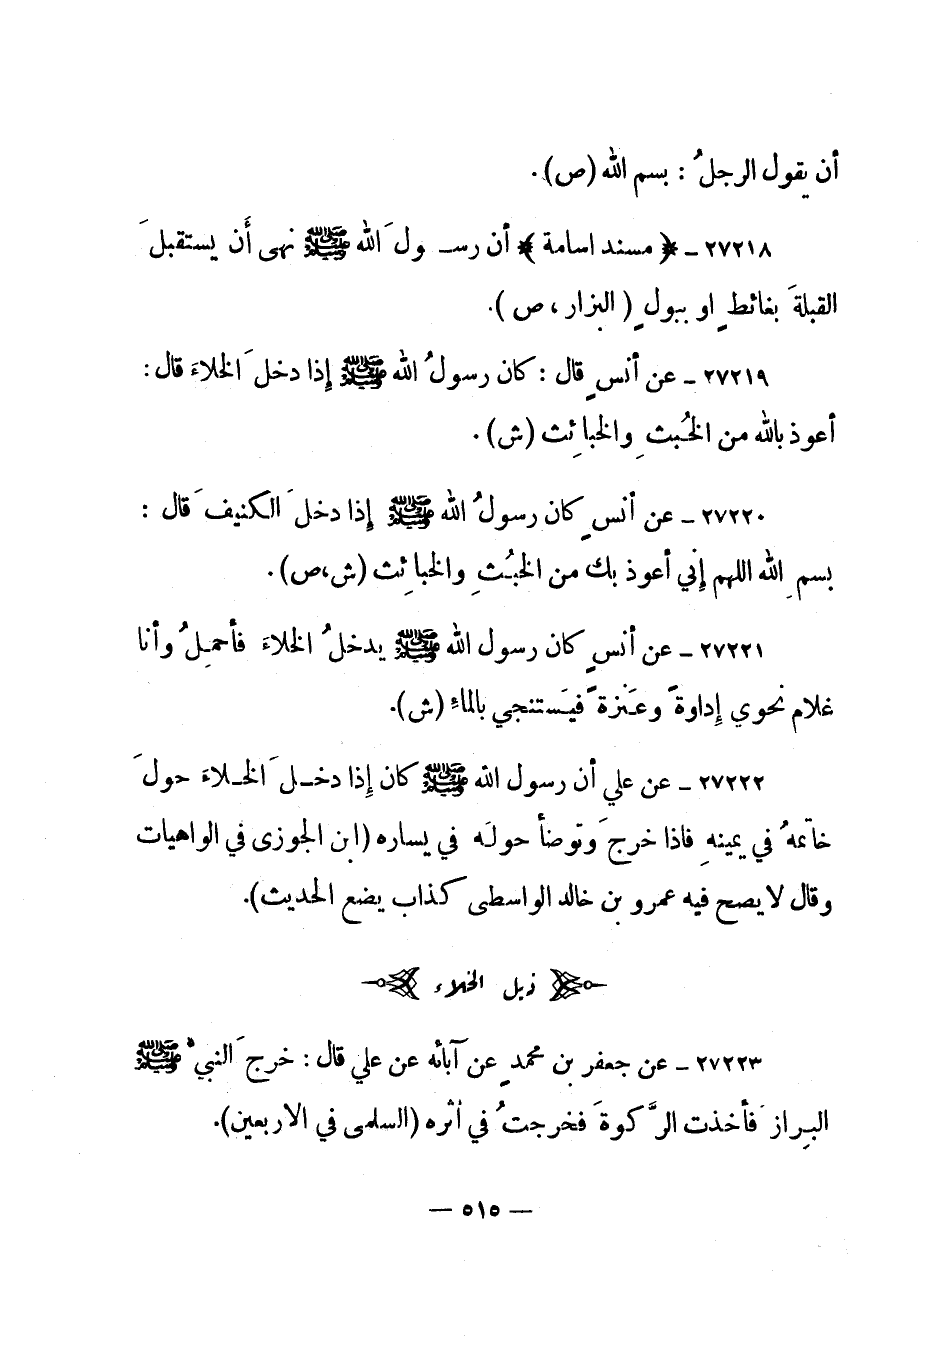 أن يقول الرجلُ : بسم الله (ص).
٢٧٢١٨ ـ ﴿ مسند اسامة ﴾ أن رسـولَ الله ﷺ نهى أَن يستقبلَ
القبلةَ بغائطٍ او ببولٍ ( البزار ، ص ).
٢٧٢١٩ ـ عن أنسٍ قال : كان رسولُ الله ﷺ إذا دخلَ الخلاءَ قال :
أعوذ بالله من الخُبثِ والخبائثِ (ش).
٢٧٢٢٠ ـ عن أنسٍ كان رسولُ الله ﷺ إذا دخلَ الكنيفَ قال :
بسمِ الله اللهم إني أعوذ بك من الخبُثِ والخبائِث (ش،ص).
٢٧٢٢١ ـ عن أنسٍ كان رسول الله ﷺ يدخلُ الخلاءَ فأحمِلُ وأنا
غلام نحوي إداوةً وعَنزةً فيَستنجي بالماءِ (ش).
٢٧٢٢٢ ـ عن علي أن رسول الله ﷺ كان إذا دخـلَ الخـلاءَ حولَ
خاتمهُ في يمينهِ فاذا خرجَ وتوضأ حولَه في يساره (ابن الجوزى في الواهيات
وقال لا يصح فيه عمرو بن خالد الواسطى كذاب يضع الحديث).
ذيل الخلاء
٢٧٢٢٣ ـ عن جعفر بن محمدٍ عن آبائه عن علي قال : خرجَ النبيُّ ﷺ
البِرازَ فأخذت الرَّكوةَ فخرجتُ في أثره (السلمى في الاربعين).
— ٥١٥ —